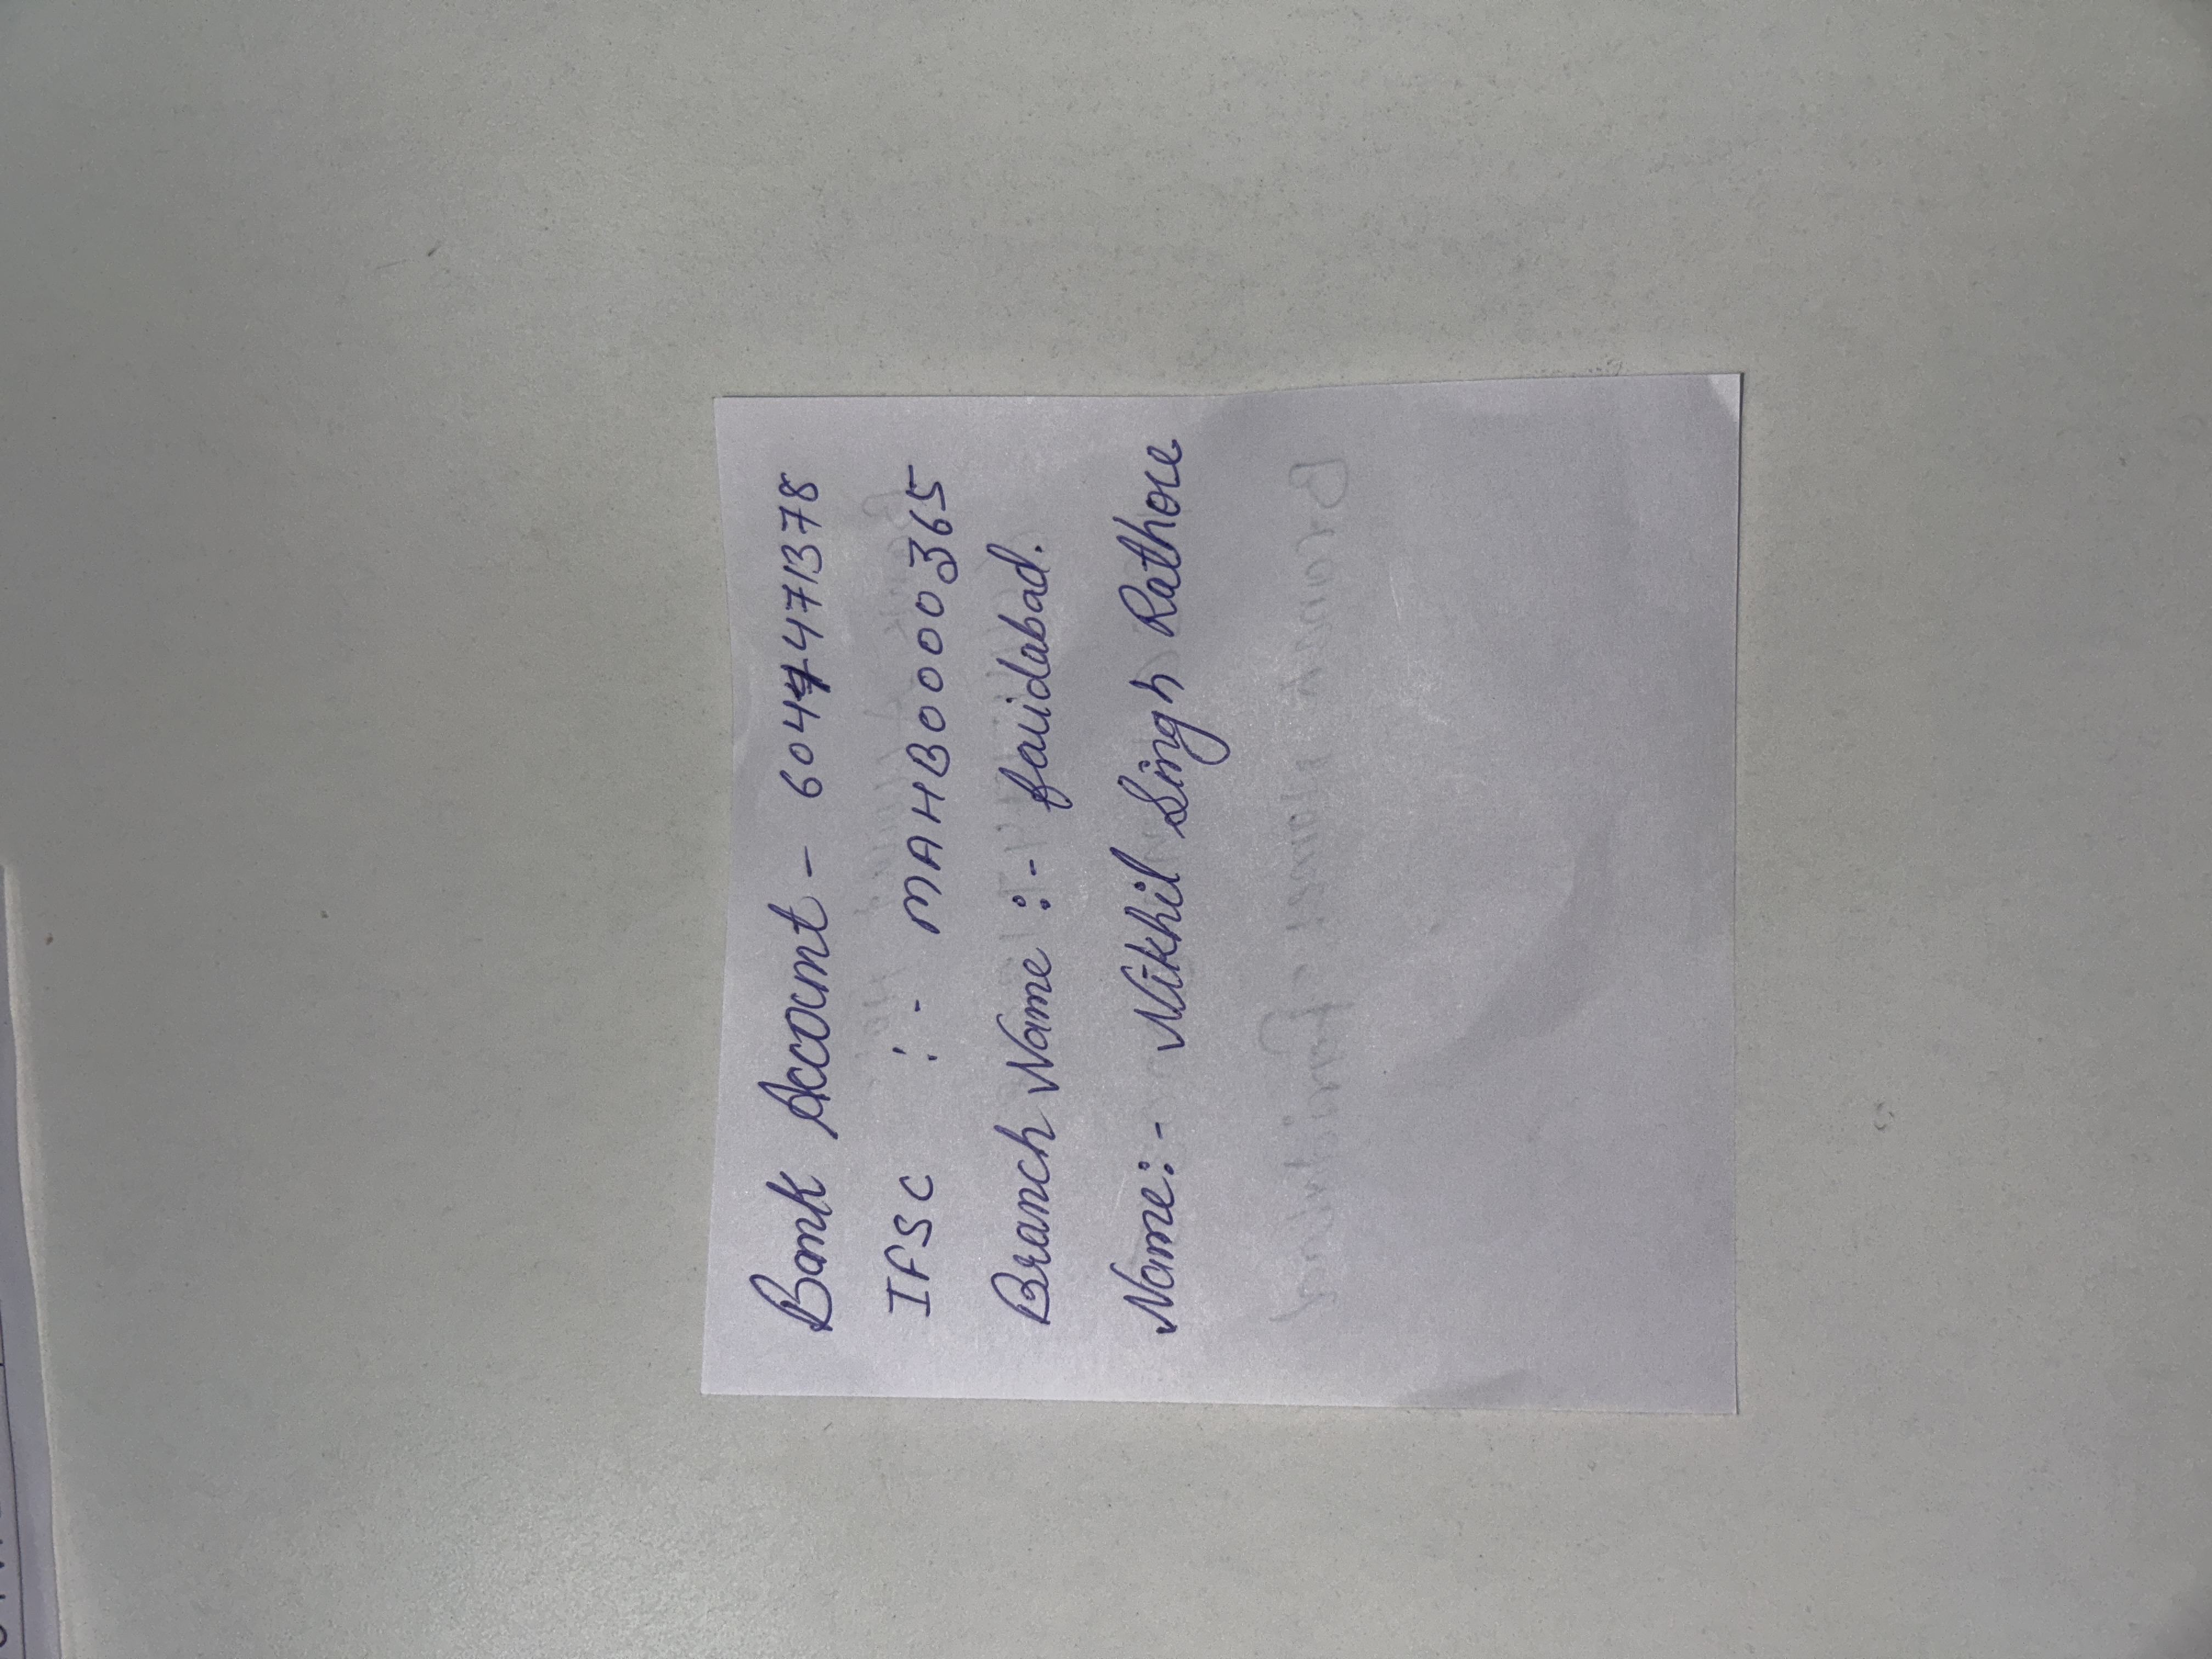 Bank Account - 60447471378
IFSC :- MAHB0000365
Branch Name :- faridabad.
Name:- Nikhil Singh Rathore